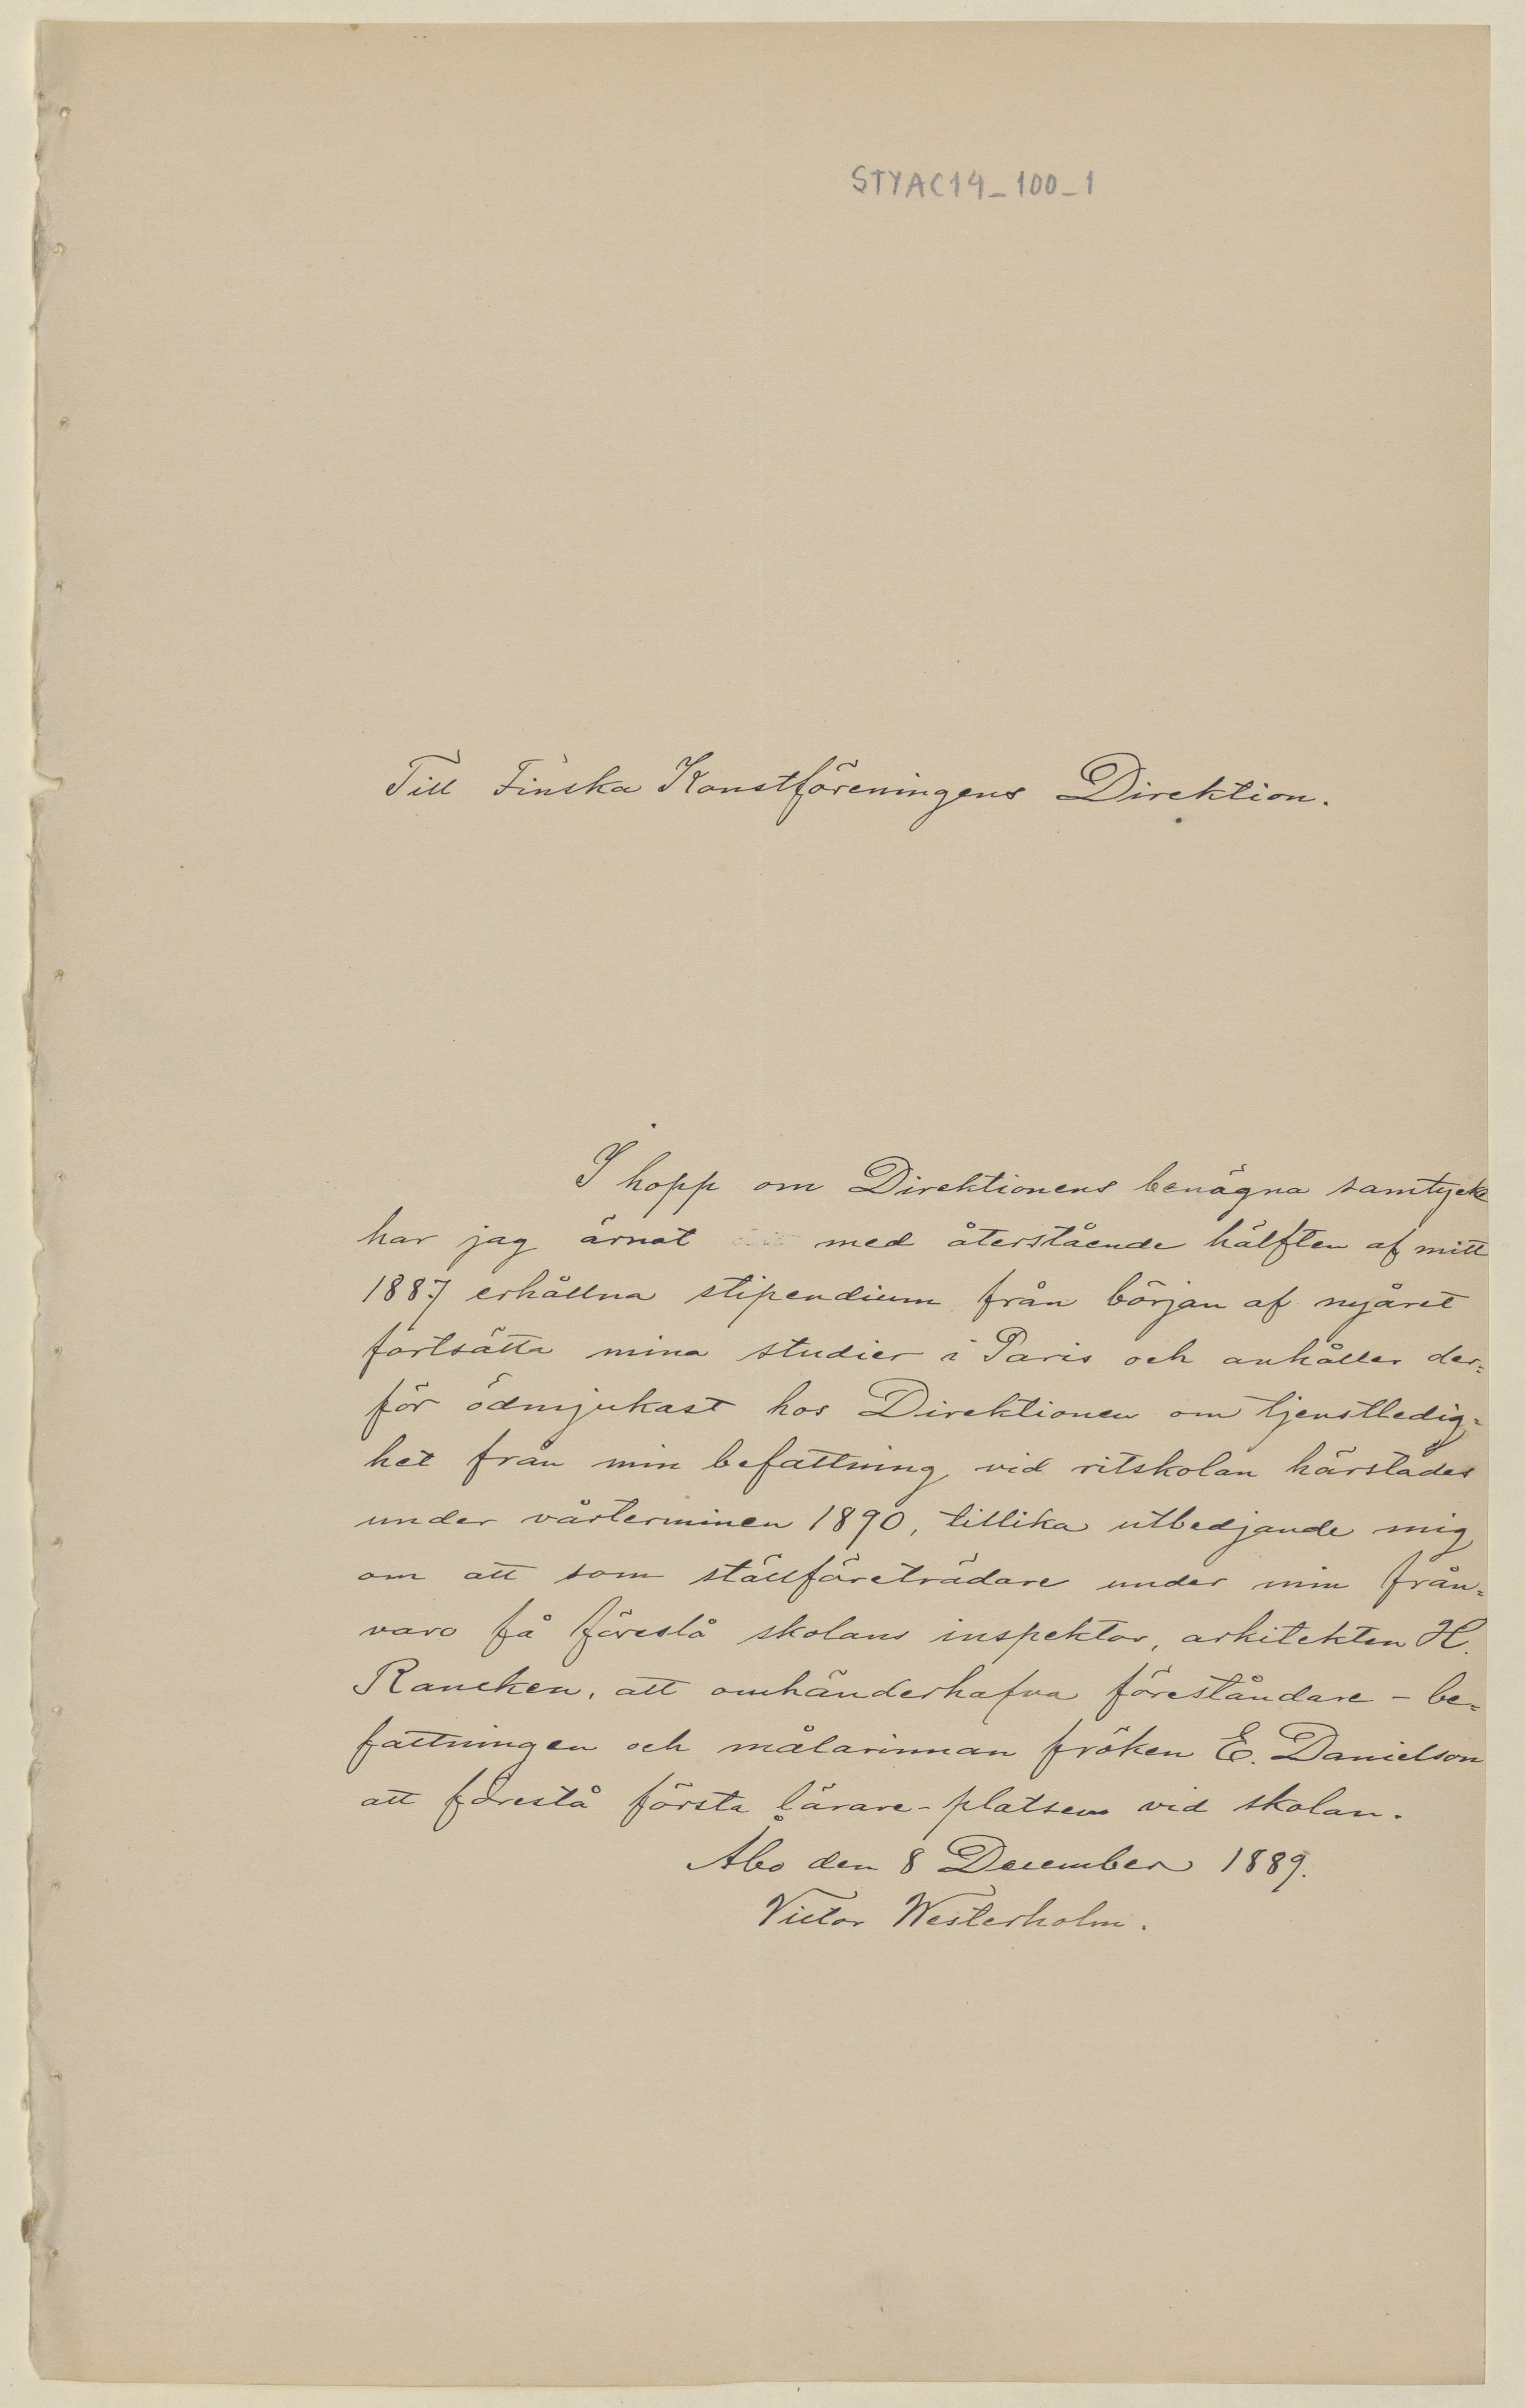 STYAC14_100_1
Till Finska Konstföreningens Direktion.
I hopp om Direktionens benägna samtycke
har jag ärnat med återstående hälften af mitt
1887 erhållna stipendium från början af nyåret
fortsätta mina studier i Paris och anhåller der=
för ödmjukast hos Direktionen om tjenstledig=
het från min befattning vid ritskolan härstädes
under vårterminen 1890, tillika utbedjande mig
om att som ställföreträdare under min från=
varo få föreslå skolans inspektor, arkitekten H.
Rancken, att omhänderhafva föreståndare-be=
fattningen och målarinnan fröken E. Danielson
att förestå första lärare-platsen vid skolan.
Åbo den 8 December 1889.
Victor Westerholm.